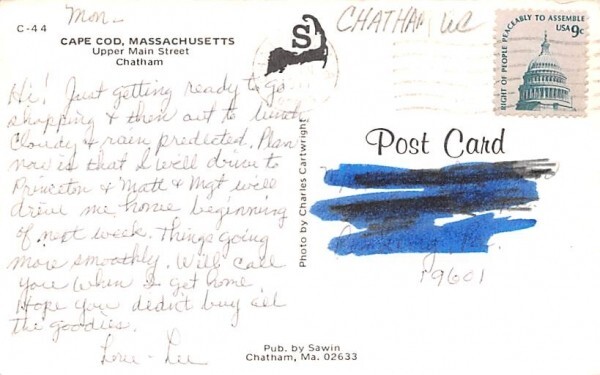 Mon-
C-44
CAPE COD, MASSACHUSETTS
Upper Main Street
Chatham
Hi! Just getting ready to go
shopping & then out to lunch
Cloudy & rain predicted. Plan
now is that I will drive to
Princeton & Matt & Mgt will
drive me home beginning
of next week. Things going
more smoothly. Will call
you when I get home.
Hope you didn't buy all
the goodies.
Love - Dee
S
Photo by Charles Cartwright
Pub. by Sawin
Chatham, Ma. 02633
CHATHAM
RIGHT OF PEOPLE PEACEABLY TO ASSEMBLE
USA 9c
Post Card
19601